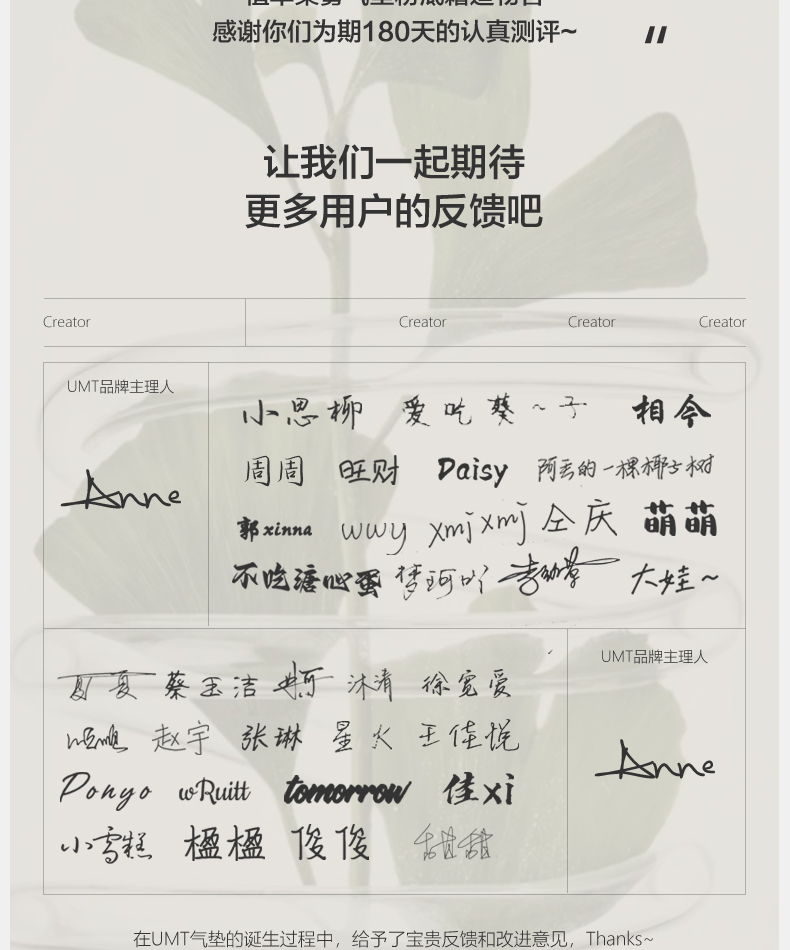 感谢你们为期180天的认真测评~
让我们一起期待
更多用户的反馈吧
Creator Creator Creator Creator
UMT品牌主理人
Anne
小思柳 爱吃葵~子 相今
周周 旺财 Daisy 阿云的一棵椰子树
郭xinna wwy xmj xmj 仝庆 萌萌
不吃溏心蛋 梦珂吖 李幼草 大娃~
夏 蔡玉洁 沐清 徐宽爱
赵宇 张琳 星火 王佳悦
Ponyo wRuitt tomorrow 佳xi
小雪糕 楹楹 俊俊 甜甜
UMT品牌主理人
Anne
在UMT气垫的诞生过程中，给予了宝贵反馈和改进意见，Thanks~